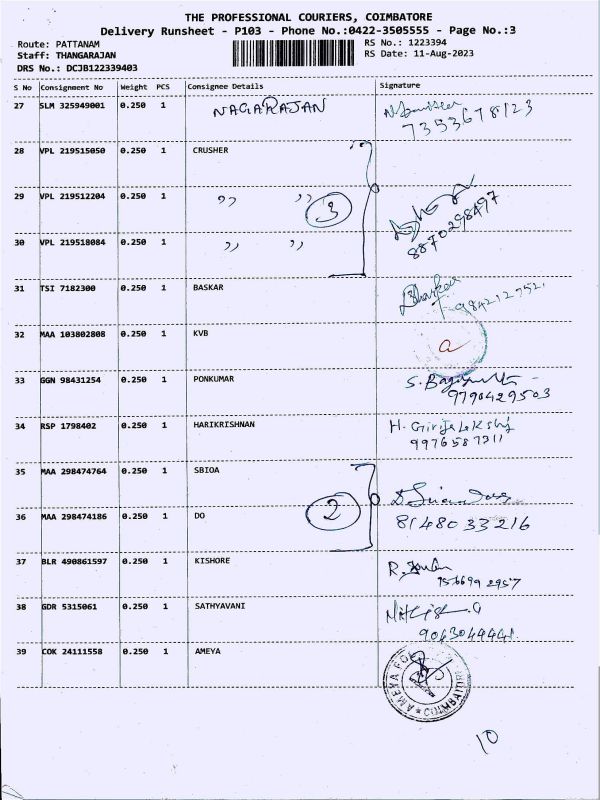 THE PROFESSIONAL COURIERS, COIMBATORE
Delivery Runsheet - P103 - Phone No.:0422-3505555 - Page No.:3
Route: PATTANAM RS No.: 1223394
Staff: THANGARAJAN RS Date: 11-Aug-2023
DRS No.: DCJB122339403
S No Consignment No Weight PCS Consignee Details Signature
27 SLM 325949001 0.250 1 NAGARAJAN
7353678123
28 VPL 219515050 0.250 1 CRUSHER
29 VPL 219512204 0.250 1 ,, ,, 3
8870298497
30 VPL 219518084 0.250 1 ,, ,,
31 TSI 7182300 0.250 1 BASKAR
32 MAA 103802808 0.250 1 KVB a
33 GGN 98431254 0.250 1 PONKUMAR
9790429503
34 RSP 1798402 0.250 1 HARIKRISHNAN H. Girija
9976587211
35 MAA 298474764 0.250 1 SBIOA
36 MAA 298474186 0.250 1 DO 2 8148033216
37 BLR 490861597 0.250 1 KISHORE
38 GDR 5315061 0.250 1 SATHYAVANI
9043044441
39 COK 24111558 0.250 1 AMEYA
AMEYA COIMBATORE
10